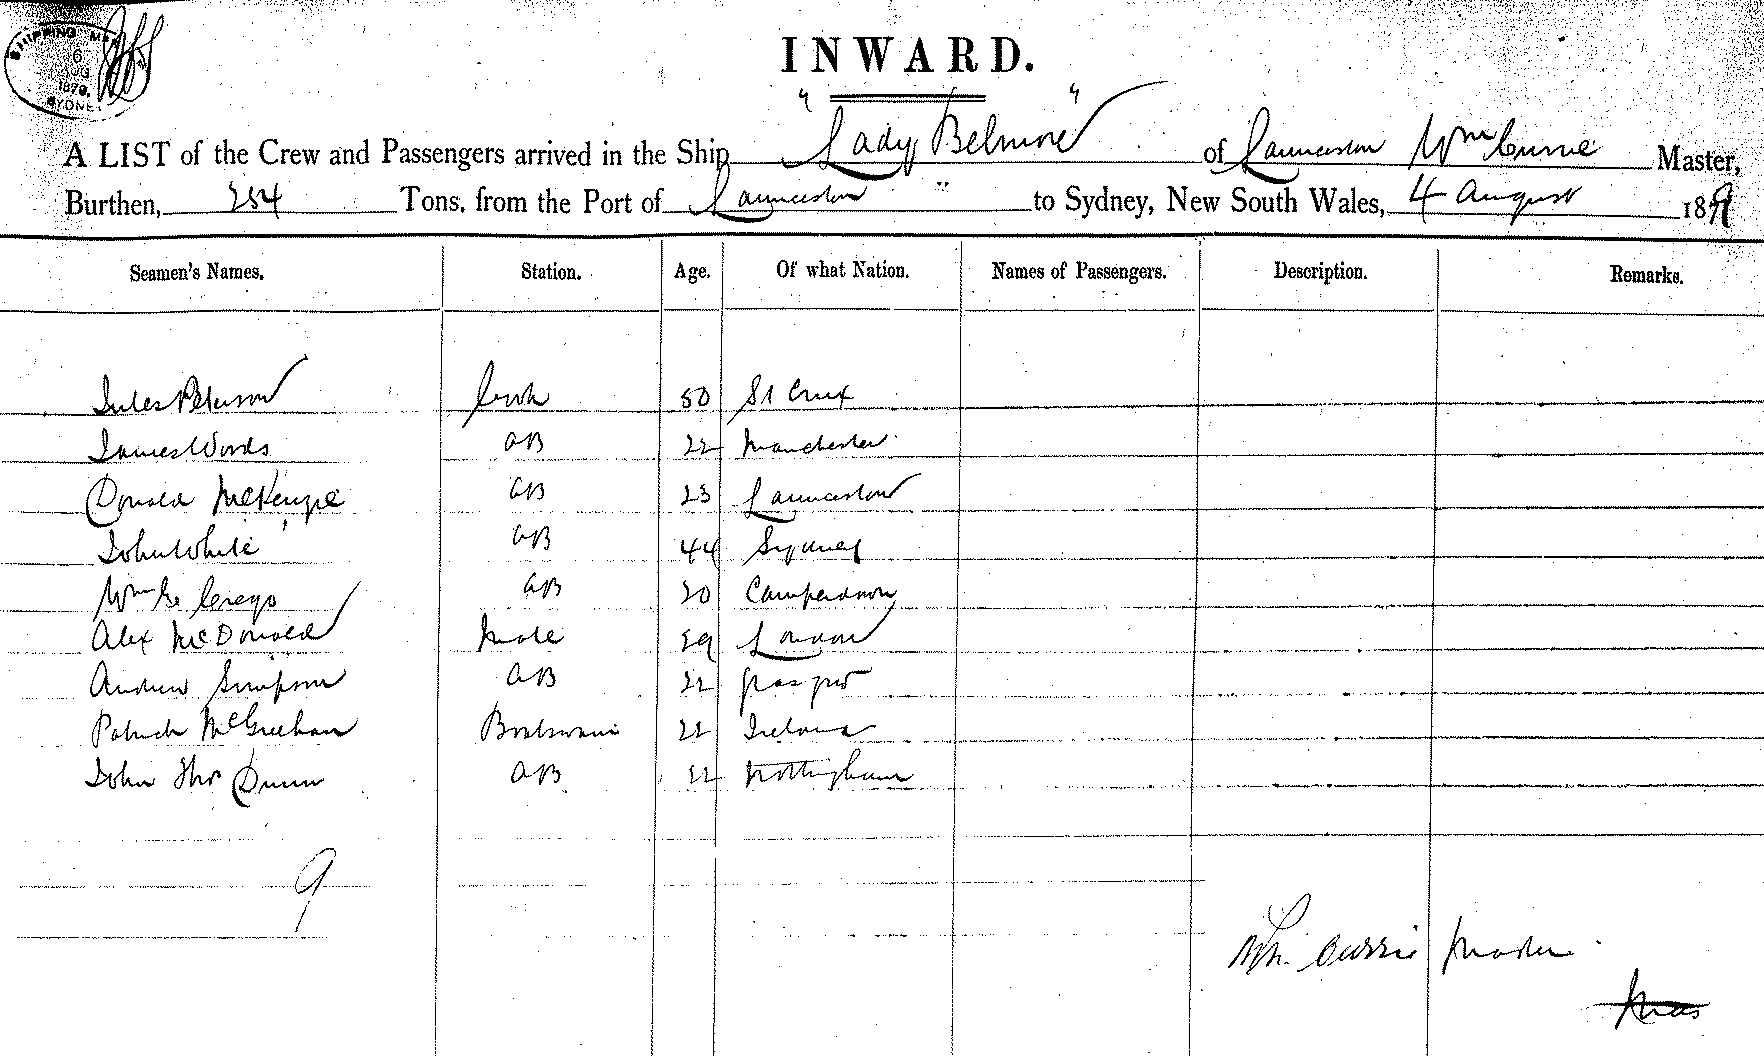 SHIPPING MA
6
AUG
1879
SYDNEY
INWARD.
A LIST of the Crew and Passengers arrived in the Ship "Lady Belmore" of Launceston Wm Currie Master,
Burthen, 254 Tons, from the Port of Launceston to Sydney, New South Wales, 4 August 1879
Seamen's Names. Station. Age. Of what Nation. Names of Passengers. Description. Remarks.
Jules Peterson Cook 50 St Croix
James Woods AB 22 Manchester
Donald McKenzie AB 23 Launceston
John White AB 44 Sydney
Wm Ge Crego AB 20 Camperdown
Alex McDonald Mate 29 London
Andrew Simpson AB 22 Glasgow
Patrick McGreehan Boatswain 22 Ireland
John Thos Dunn AB 22 Nottingham
9
Wm. Currie Master